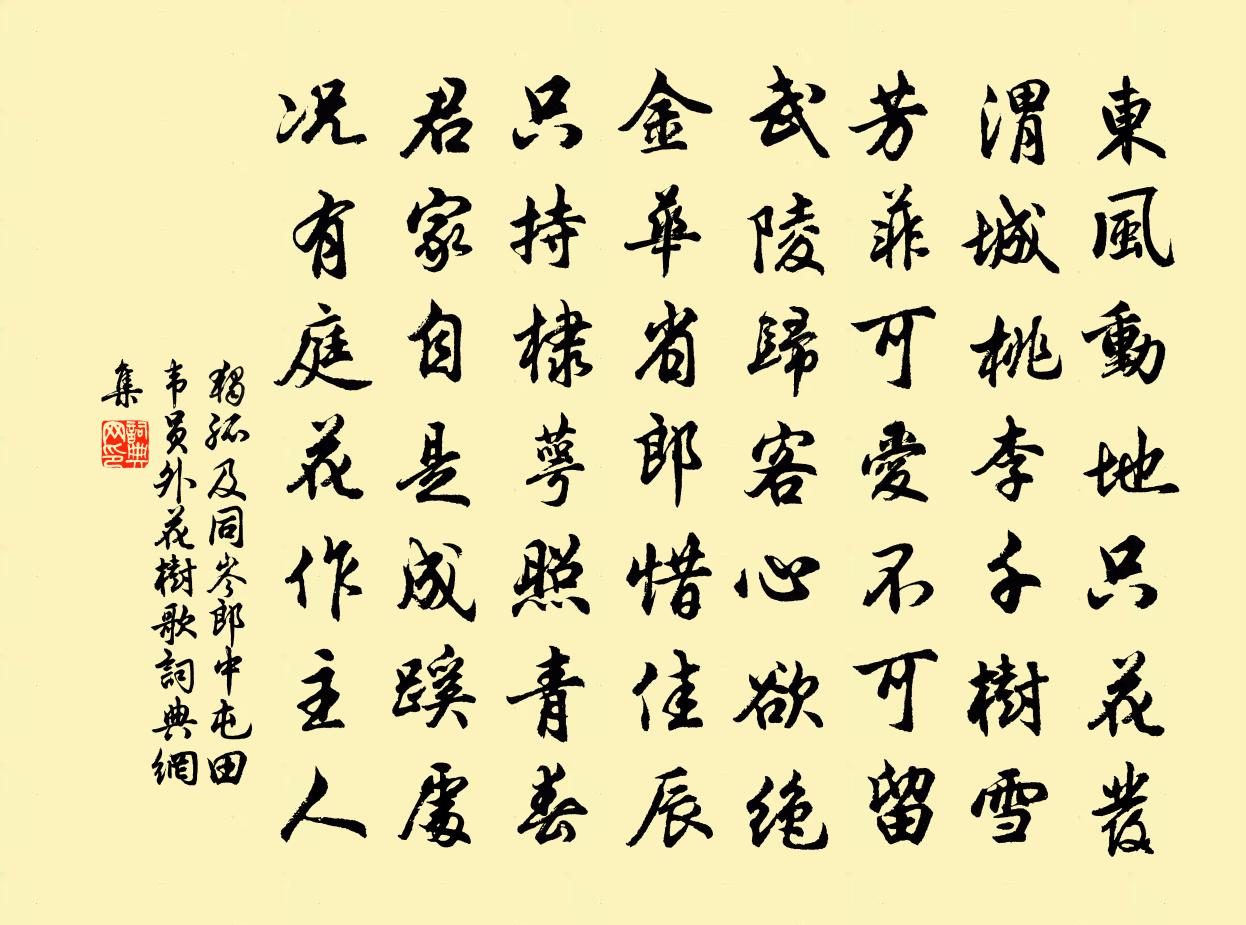 東風動地只花發
渭城桃李千樹雪
芳菲可愛不可留
武陵歸客心欲绝
金華省郎惜佳辰
只持棣萼照青春
君家自是成蹊處
况有庭花作主人
獨孤及同岑郎中屯田
韦員外花樹歌詞典網
集
詞典网印